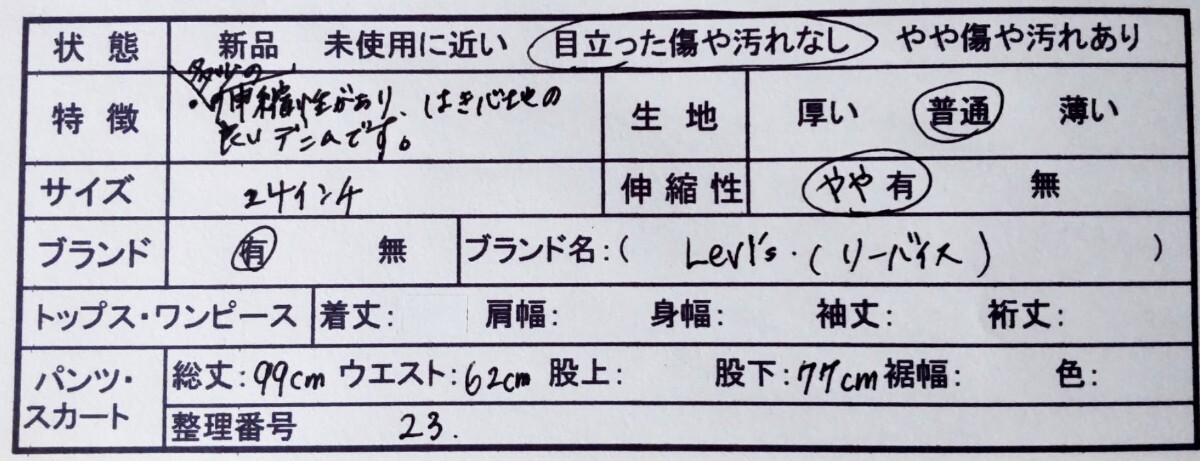 状態 新品 未使用に近い 目立った傷や汚れなし やや傷や汚れあり
特徴 多少の
・伸縮性があり、はき心地の
良いデニムです。
生地 厚い 普通 薄い
サイズ 24インチ 伸縮性 やや有 無
ブランド 有 無 ブランド名:( Levi's・(リーバイス) )
トップス・ワンピース 着丈: 肩幅: 身幅: 袖丈: 裄丈:
パンツ・スカート 総丈:99cm ウエスト:62cm 股上: 股下:77cm 裾幅: 色:
整理番号 23.